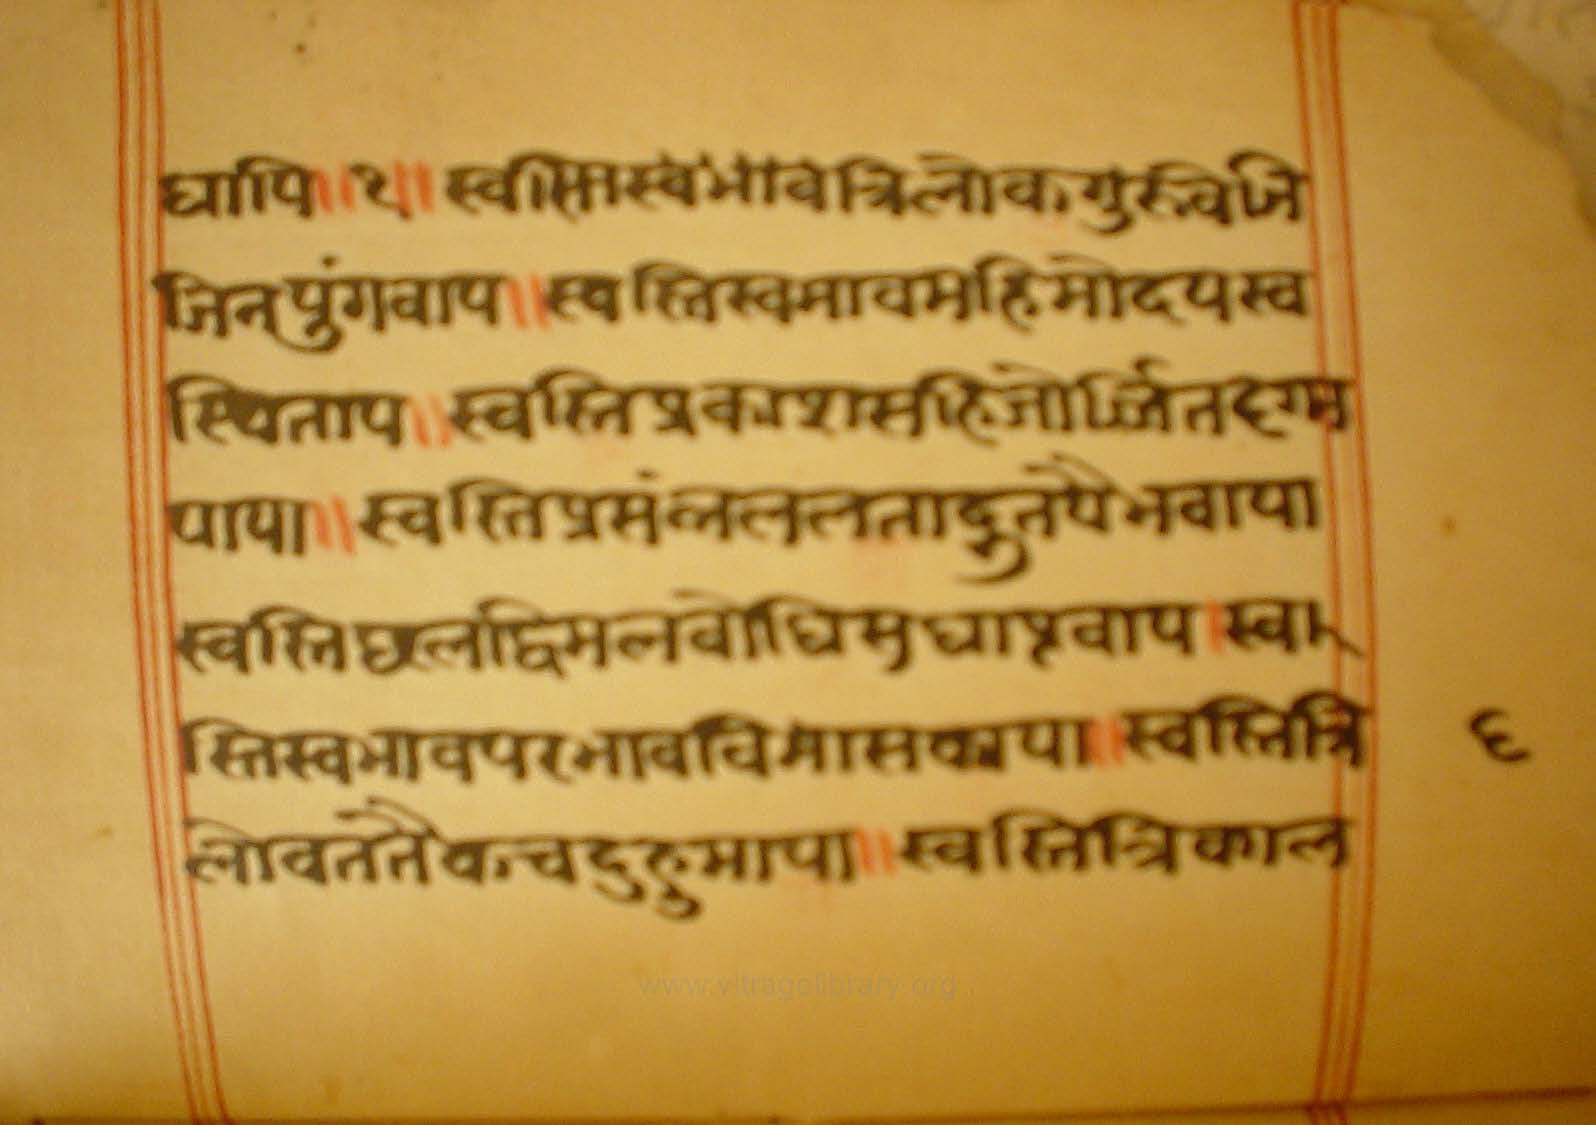 घापि॥१॥स्वस्तिस्वभावत्रिलोकगुरुवेजि
जिनपुंगवाय॥स्वस्तिस्वभावमहिमोदयस्व
स्थिताय॥स्वस्तिप्रकाशसहिजोर्ज्जितदृगम
याया॥स्वस्तिप्रसंनललताद्भुतवैभवाया
स्वस्तिछलद्विमलबोधिसुधाप्लवाय।स्वा
स्तिस्वभावपरभावविभासकाया॥स्वस्तित्रि
लोवततैकचदुद्गमाया॥स्वस्तित्रिकाल
६
www.vitragelibrary.org